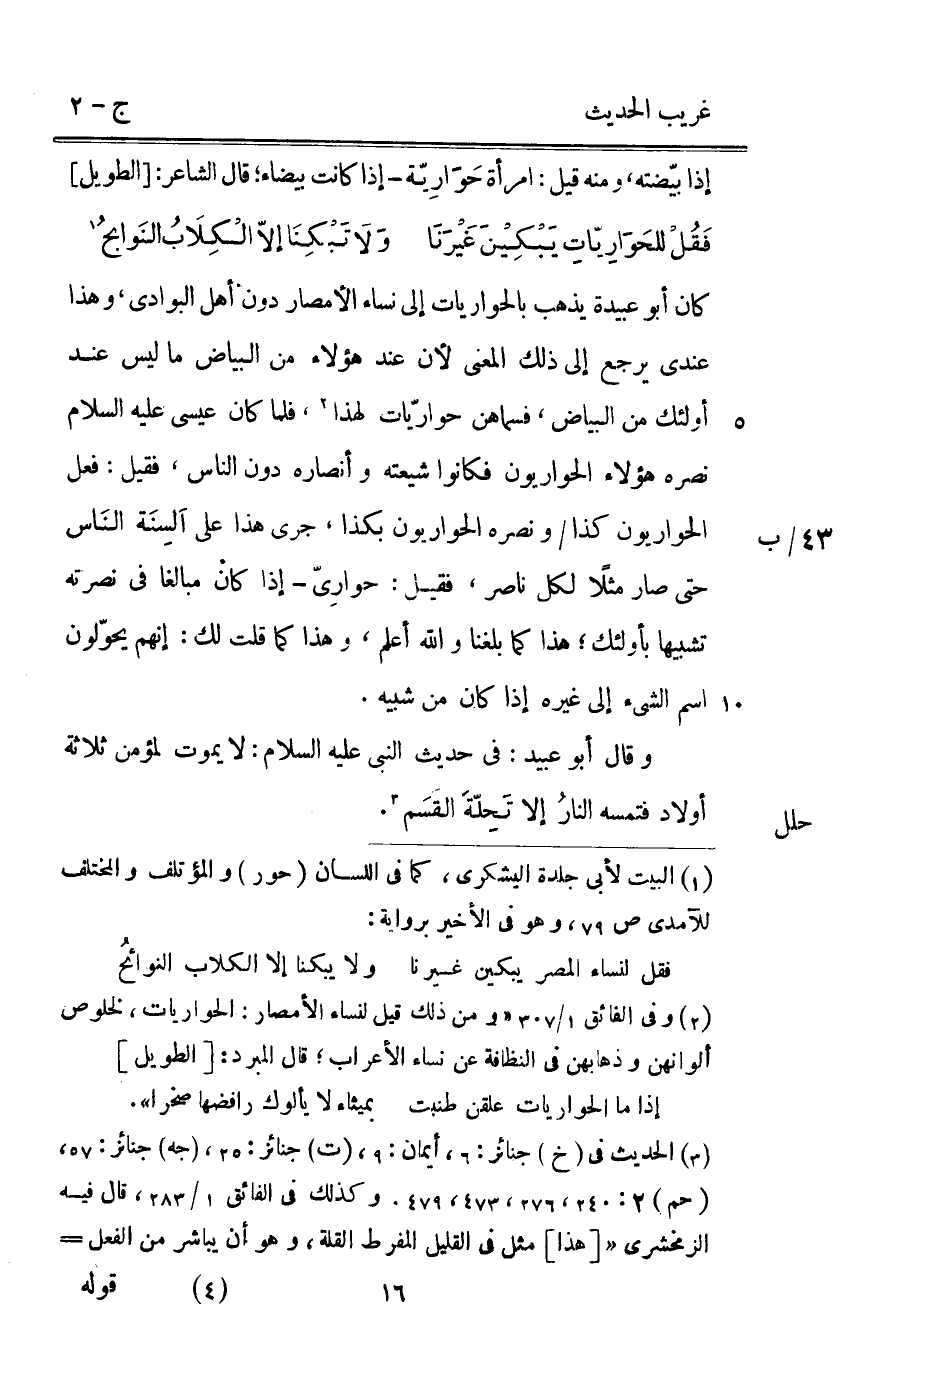 غريب الحديث ج – ٢
إذا بيّضته، و منه قيل : امرأة حَوَارِيّة – إذا كانت بيضاء؛ قال الشاعر: [الطويل]
فَقُلْ للحَوَارِيّاتِ يَبْكِيْنَ غَيْرَنَا وَ لَا تَبْكِنَا إلاّ الْكِلَابُ النَوابحُ¹
كان أبو عبيدة يذهب بالحواريات إلى نساء الأمصار دون أهل البوادى، و هذا
عندى يرجع إلى ذلك المعنى لأن عند هؤلاء من البياض ما ليس عند
٥ أولئك من البياض، فسماهن حواريّات لهذا²، فلما كان عيسى عليه السلام
نصره هؤلاء الحواريون فكانوا شيعته و أنصاره دون الناس، فقيل : فعل
٤٣/ ب الحواريون كذا/ و نصره الحواريون بكذا، جرى هذا على ألسِنَة النَاس
حتى صار مثلًا لكل ناصر، فقيل : حوارِىّ – إذا كانْ مبالغا فى نصرته
تشبيها بأولئك؛ هذا كما بلغنا و الله أعلم، و هذا كما قلت لك : إنهم يحوّلون
١٠ اسم الشىء إلى غيره إذا كان من شبيه .
و قال أبو عبيد : فى حديث النبى عليه السلام : لا يموت لمؤمن ثلاثة
حلل أولاد فتمسه النارُ إلا تَحِلّةَ القَسَم³.
(١) البيت لأبى جلدة اليشكرى، كما فى اللسان (حور) و المؤتلف و المختلف
للآمدى ص ٧٩، و هو فى الأخير برواية :
فقل لنساء المصر يبكين غيرنا و لا يبكنا إلا الكلاب النوائحُ
(٢) و فى الفائق ٣٠٧/١ «و من ذلك قيل لنساء الأمصار : الحواريات، لخلوص
ألوانهن و ذهابهن فى النظافة عن نساء الأعراب؛ قال المبرد : [الطويل]
إذا ما الحواريات علقن طنبت بميثاء لا يألوك رافضها صخرا».
(٣) الحديث فى (خ) جنائز : ٦، أيمان : ٩، (ت) جنائز : ٢٥، (جه) جنائز : ٥٧،
(حم) ٢ : ٢٤٠، ٢٧٦، ٤٧٣، ٤٧٩ . و كذلك فى الفائق ١/ ٢٨٣، قال فيه
الزمخشرى «[هذا] مثل فى القليل المفرط القلة، و هو أن يباشر من الفعل =
١٦ (٤) قوله